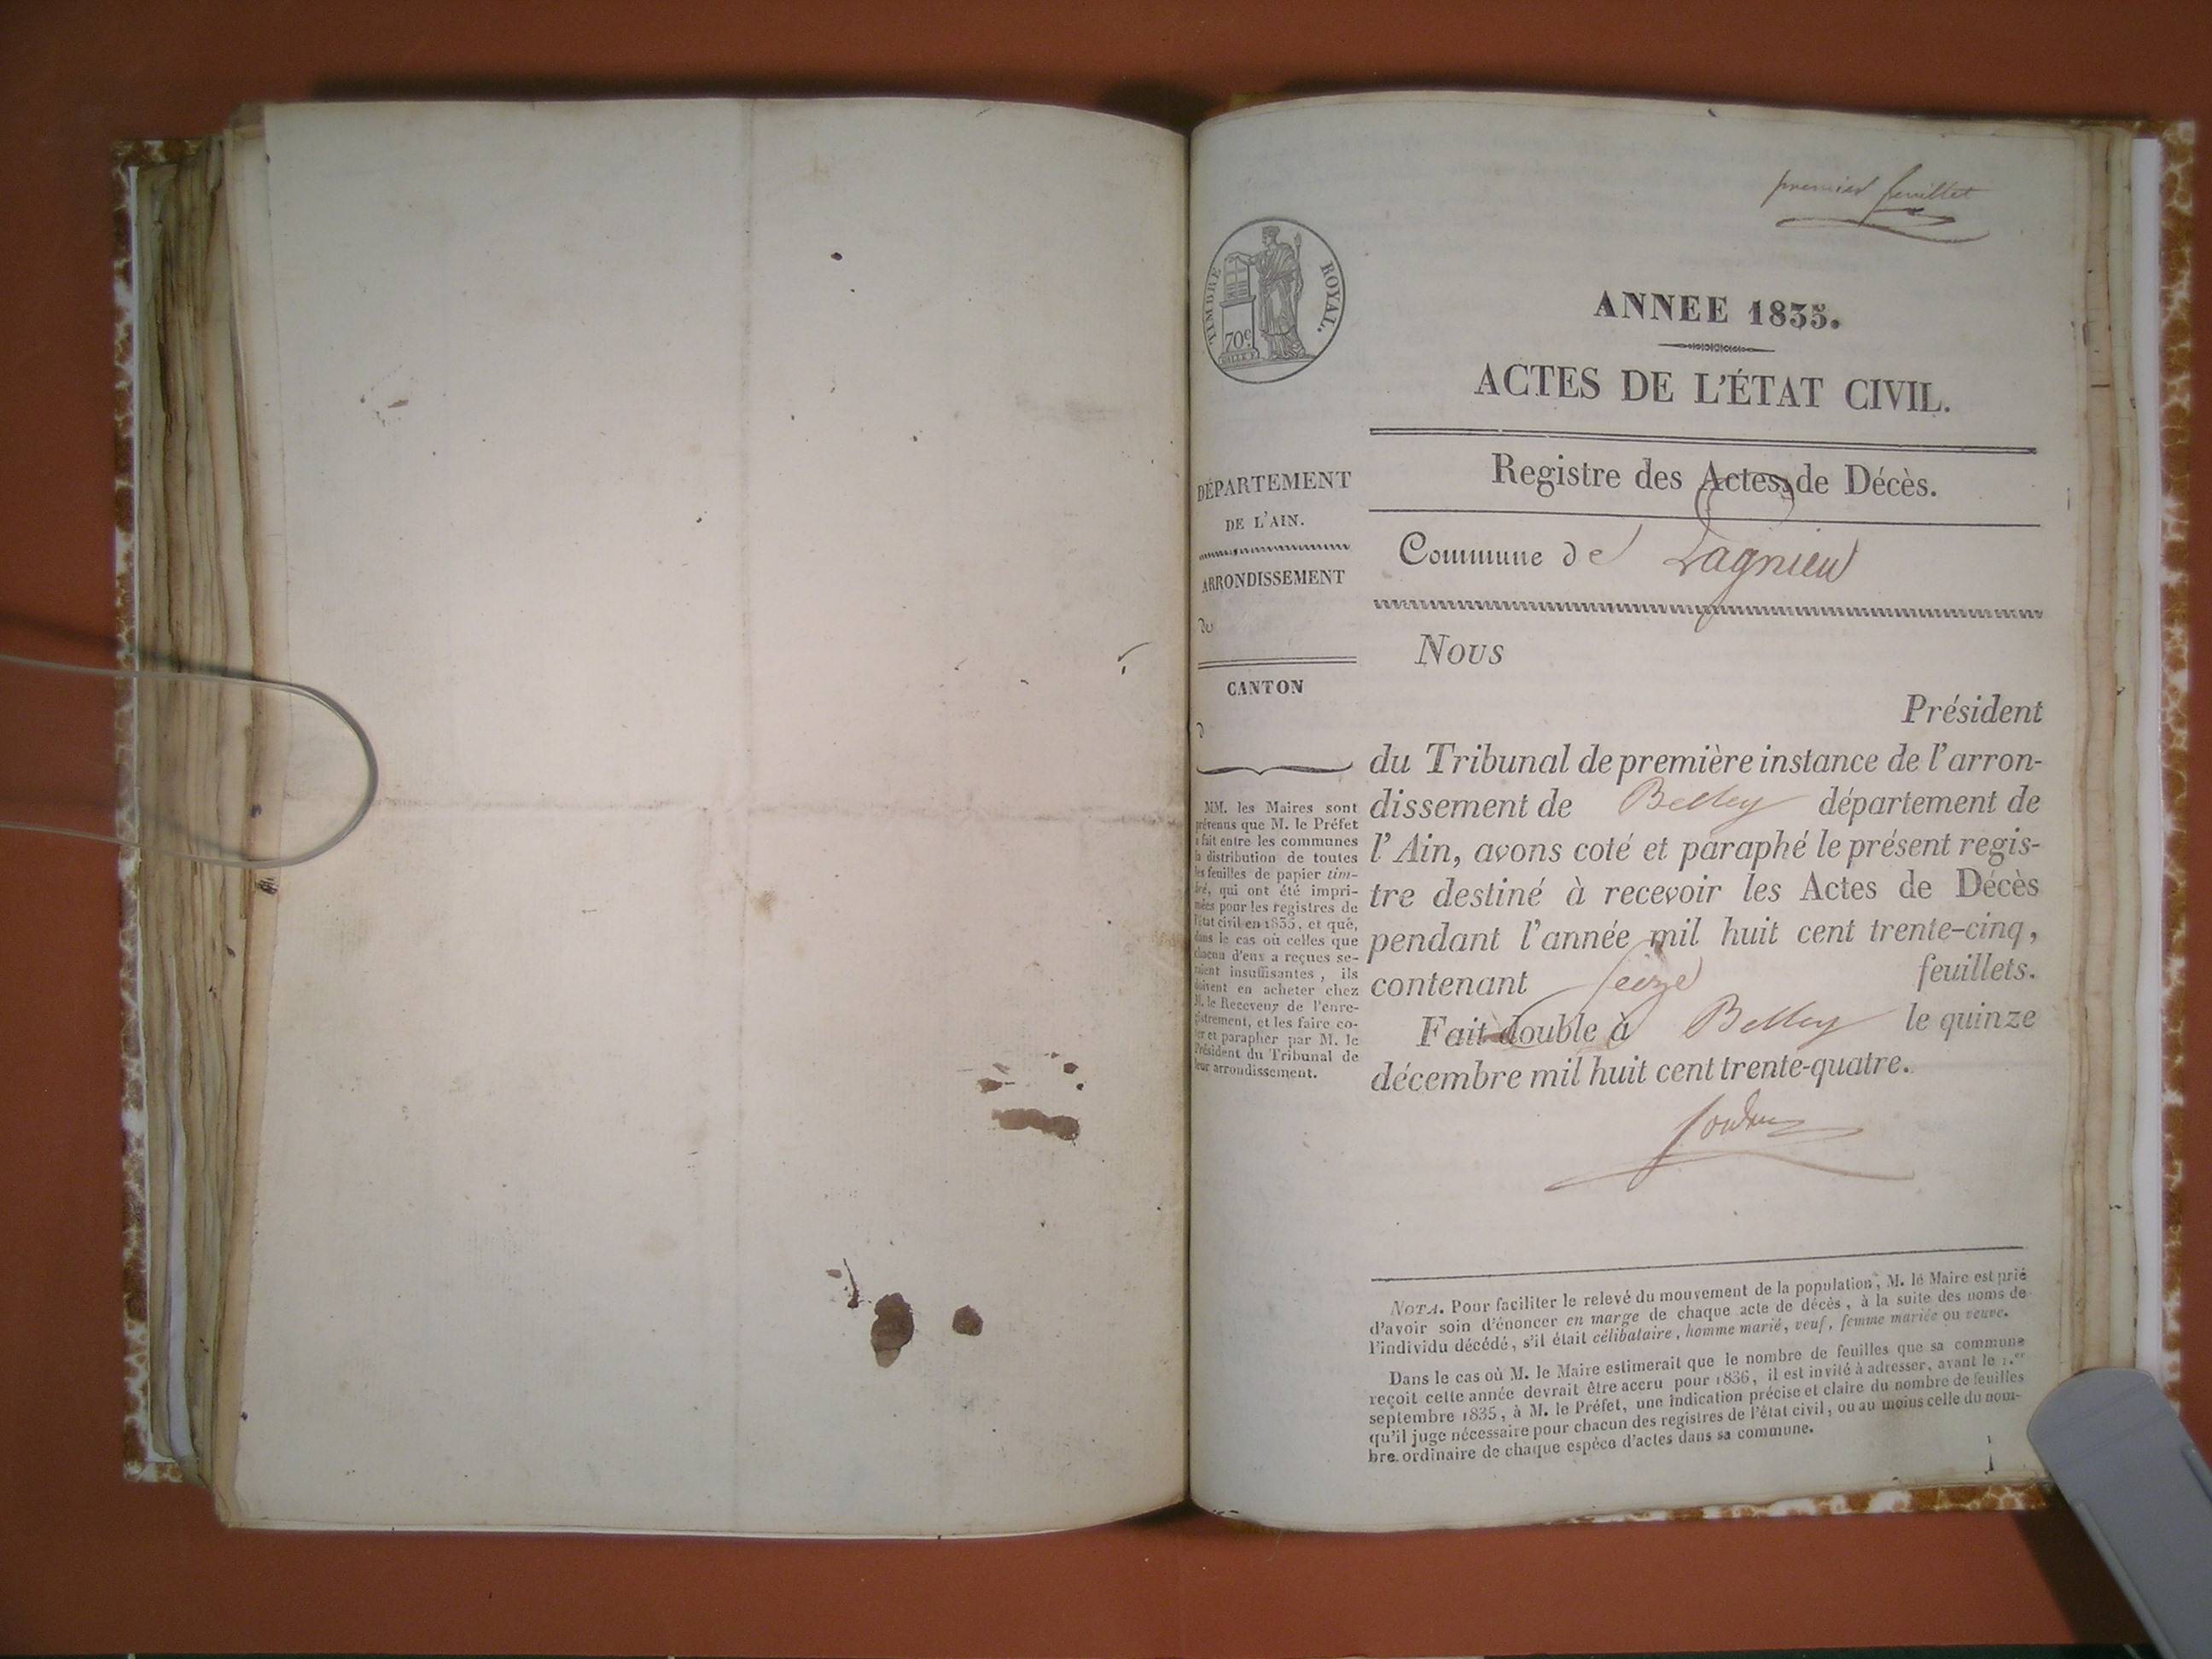 premier feuillet
TIMBRE ROYAL.
70c
ANNEE 1835.
ACTES DE L'ÉTAT CIVIL.
Registre des Actes de Décès.
Commune de Lagnieu
DÉPARTEMENT
DE L'AIN.
ARRONDISSEMENT
de
CANTON
d
MM. les Maires sont
prévenus que M. le Préfet
a fait entre les communes
la distribution de toutes
les feuilles de papier tim-
bré, qui ont été impri-
mées pour les registres de
l'état civil en 1835, et que,
dans le cas où celles que
chacun d'eux a reçues se-
raient insuffisantes, ils
doivent en acheter chez
M. le Receveur de l'enre-
gistrement, et les faire co-
ter et parapher par M. le
Président du Tribunal de
leur arrondissement.
Nous
Président
du Tribunal de première instance de l'arron-
dissement de Belley département de
l'Ain, avons coté et paraphé le présent regis-
tre destiné à recevoir les Actes de Décès
pendant l'année mil huit cent trente-cinq,
contenant seize feuillets.
Fait double à Belley le quinze
décembre mil huit cent trente-quatre.
NOTA. Pour faciliter le relevé du mouvement de la population, M. le Maire est prié
d'avoir soin d'énoncer en marge de chaque acte de décès, à la suite des noms de
l'individu décédé, s'il était célibataire, homme marié, veuf, femme mariée ou veuve.
Dans le cas où M. le Maire estimerait que le nombre de feuilles que sa commune
reçoit cette année devrait être accru pour 1836, il est invité à adresser, avant le 1.er
septembre 1835, à M. le Préfet, une indication précise et claire du nombre de feuilles
qu'il juge nécessaire pour chacun des registres de l'état civil, ou au moins celle du nom-
bre ordinaire de chaque espèce d'actes dans sa commune.